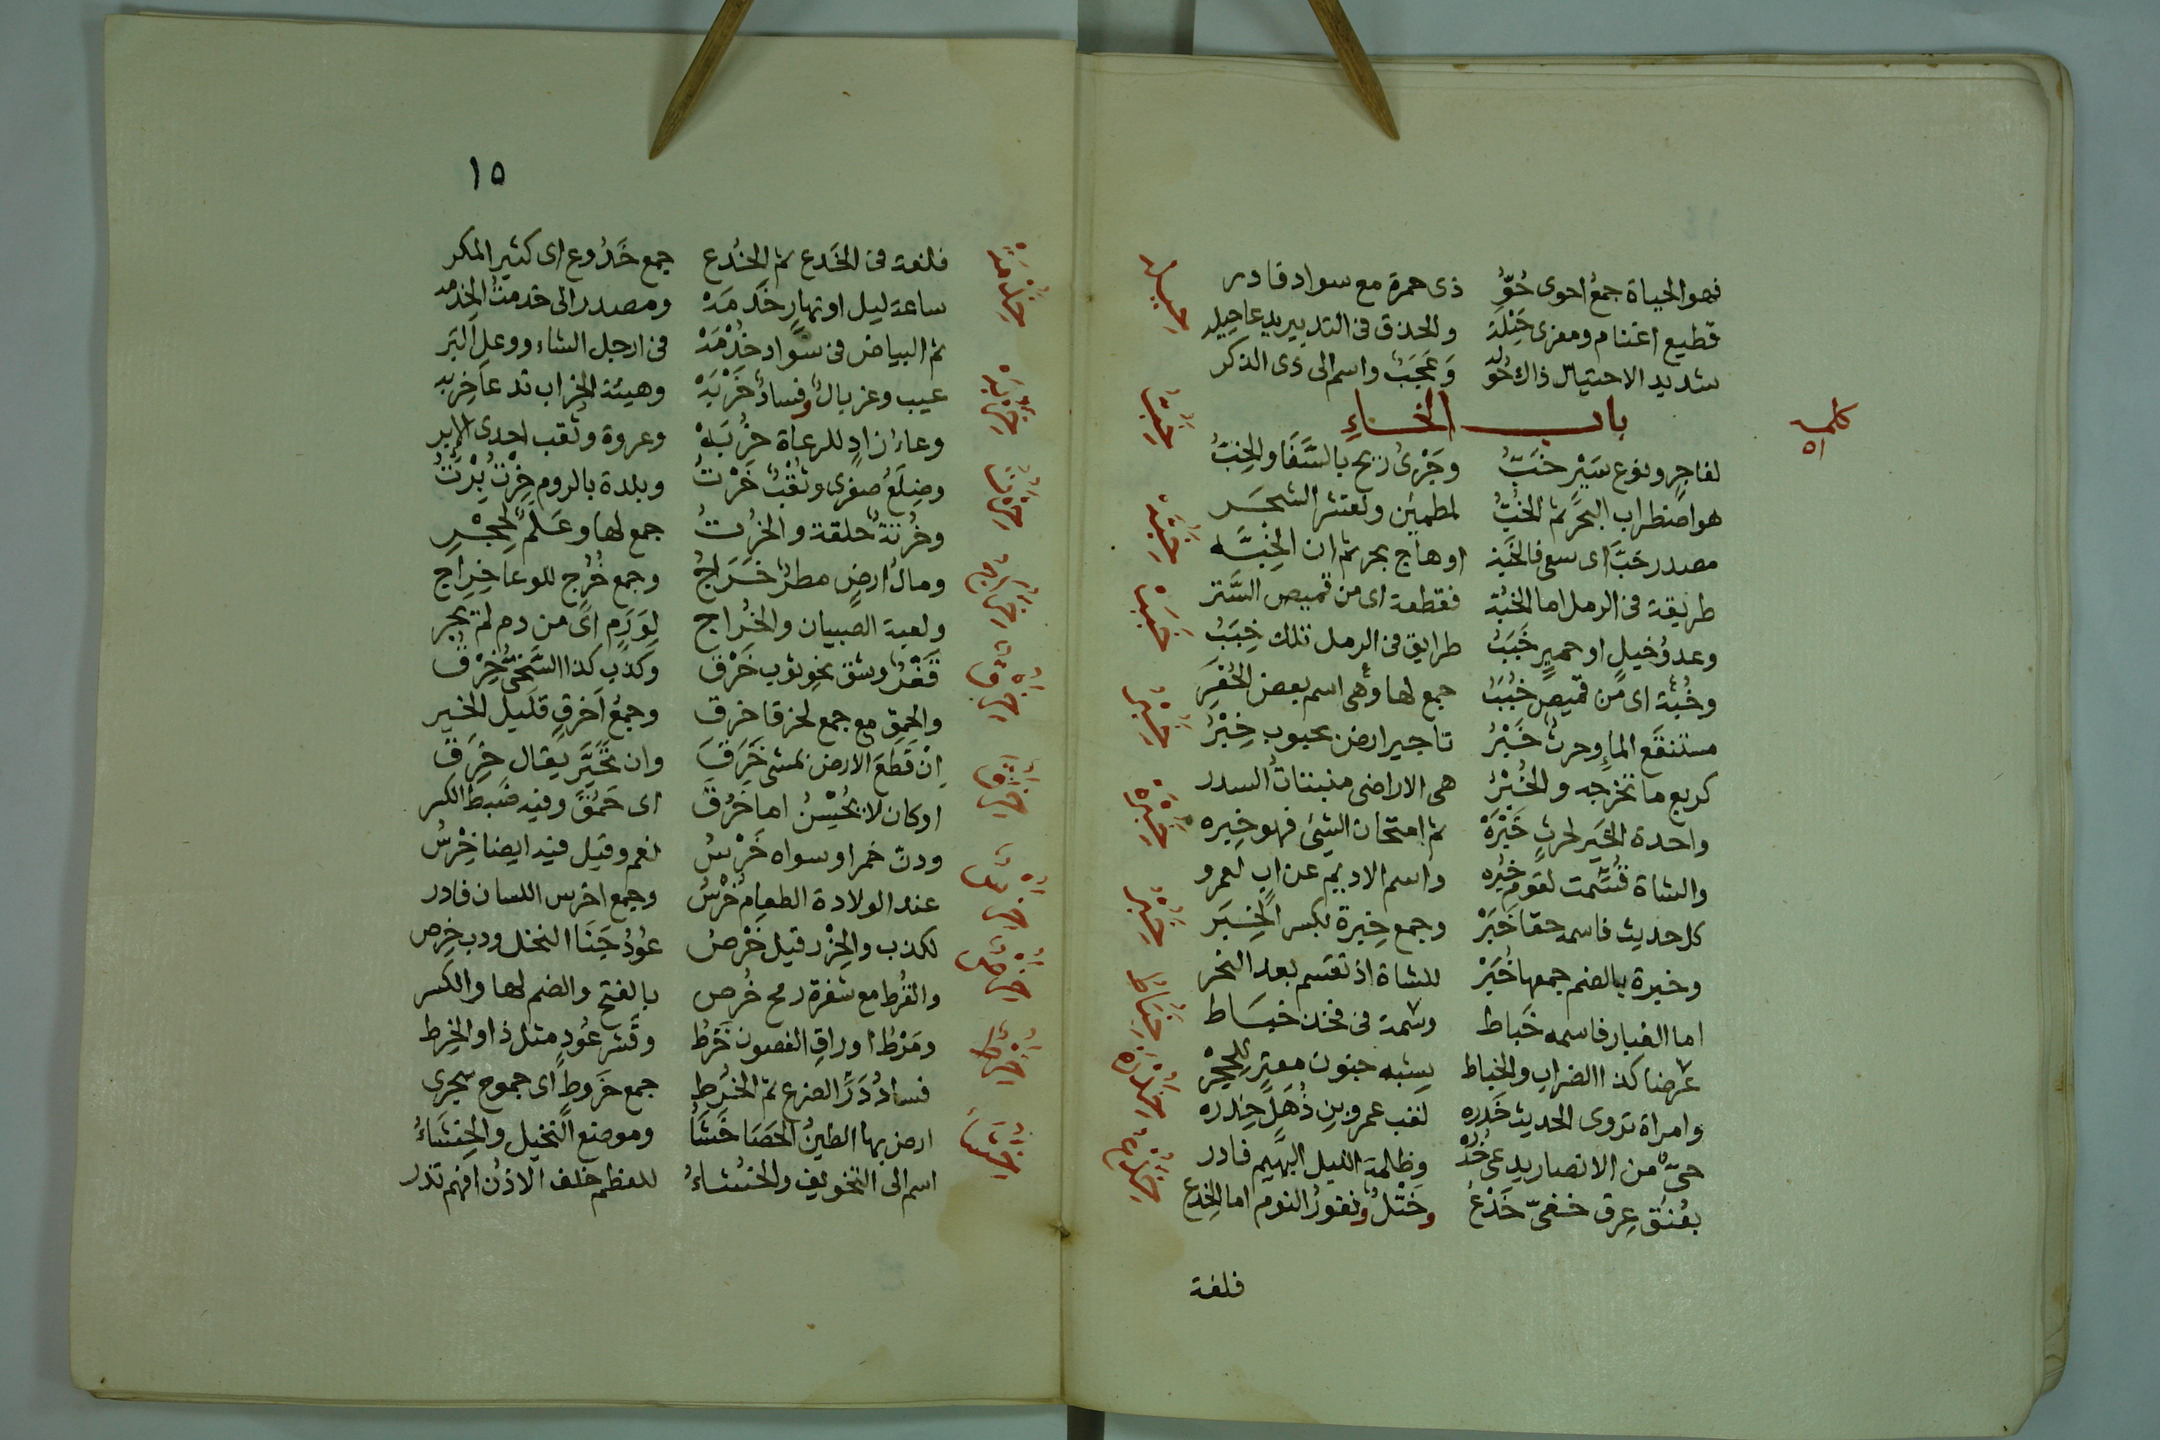 فهو الحياة جمعُ احوى حُوُّ ذى حمرة مع سواد قادر
قطيع اغنام ومعزى حَيْلة والحذق فى التدبير يدعا حِيله
شديد الاحتيال ذاك حُوَّلَه وَعَجَبٌ واسم الى ذى الذكر
باب الخاءِ
كلمه ٥١
لفاجرٍ ونوع سَيْر خَبَبُّ وجَرْىُ ريح بالسَّفَا والخِبُّ
هو اضطراب البحر ثم الخُبُّ لمطمئن ولقشر الشجر
مصدر خبَّ اى سعى فالخَبة او هاج بحر ثم ان الخِبَّه
طريقة فى الرمل اما الخُبّة فقطعة اى من قميص السَّتر
وعدوُ خيلٍ او حميرٍ خَبَبُ طرايق فى الرمل تلك خِبَبُ
وخُبّة اى من قميص خُبَبُ جمع لها وهى اسم بعض الحُفَرِ
مستنقَع الماءِ وحرث خَبْرُ تاجير ارض بحبوب خِبْرُ
كربع ما تخرجه والخُبْرُ هى الاراضى منبتات السدر
واحدة الخَبر لحرثٍ خَبْرَهْ ثم امتحان الشيئ فهو خِبره
والشاة قُسّمت لقوم خُبْره واسم الاديم عن اب لعمرو
كل حديث فاسمه حقا خَبَرْ وجمع خِبرة بكسر الخِبَر
وخبرة بالضم جمعها خُبَرْ للشاة اذ تقسم بعد النحر
اما الغبار فاسمه خَباط وشمة فى فخذ خباط
عرضا كذا الضراب والخباط يشبه جنون معترٍ للحِجْر
وامراة تروى الحديث خَدره لقب عمرو بن ذُهَلٍ خِدره
حىٌّ من الانصار يدعى خُدْرَه وظلمة الليل البهيم فادر
بعُنُق عِرق خفىّ خَدْعُ وخَتْلٌ ونفورُ النوم اما الخِدعُ
فلغة
حيله
خبّ
خبّه
خبب
خبر
خبره
خبر
خباط
خدره
خدع
١٥
فلغة فى الخَدع ثم الخُدع جمع خَدُوع اى كثير المكر
ساعة ليل او نهارٍ خَدمَهْ ومصدر الى خدمتُ الخِدمه
ثم البياض فى سواد خُدْمَهْ فى ارجل الشاء ووعلِ البَر
عيب وغربالٌ وفسادٌ خَرْبَهْ وهيئة الخراب تدعا خِربه
وعاءُ زادٍ للرعاة خِرْبَهْ وعروة وثقب احدى الابر
وضِلَعٌ صغرى وثُقْبٌ خَرْتُ وبلدة بالروم خِرْتُ بِرْتُ
وخُرْتةٌ حلقة والخُرتُ جمع لها وعَلَمٌ لحِجْرِ
ومالُ ارضٍ مطرٌ خَرَاجُ وجمع خُرْج للوعا خِراج
ولعبة الصبيان والخُراج لِوَرَمٍ اى من دم لم يجر
قَفْرٌ وشق نحوِ ثوب خَرْق وكذب كذا السَّخىُّ خِرْق
والحمق مع جمع لخرقا خرق وجمعُ اَخرقٍ قليل الخير
اِنْ قَطَعَ الارض بمشى خَرَقَ وان تحَيَّر يقال خَرِق
او كان لا يُحْسِنُ اما خَرُق اى حَمُقَ وفيه ضبط الكسر
ودن خمر او سواه خَرْسُ نعم وقيل فيه ايضا خِرْسُ
عند الولادة الطعام خُرْسُ وجمع اخرس اللسان فادر
لكذب والحِزْر قيل خَرْصُ عُودُ جَنَا النخل ودب خِرص
والقُرط مع شفرة رمح خُرص بالفتح والضم لها والكسر
ومَرْطُ اوراقِ الغصون خَرْطُ وقَشر عُودٍ مثل ذا والخِرط
فسادُ دَرَّ الضرع ثم الخُرط جمع خَروطٍ اى جموح يجرى
ارض بها الطينُ الحَصَا خَشَاءُ وموضع النخيل والخِشَاءُ
اسم الى التخويف والخُشَشاءُ للعظم خلف الاذْن افهم تدر
خدمة
خربه
خرت
خراج
خرق
خرق
خرس
خرص
خرط
خشا